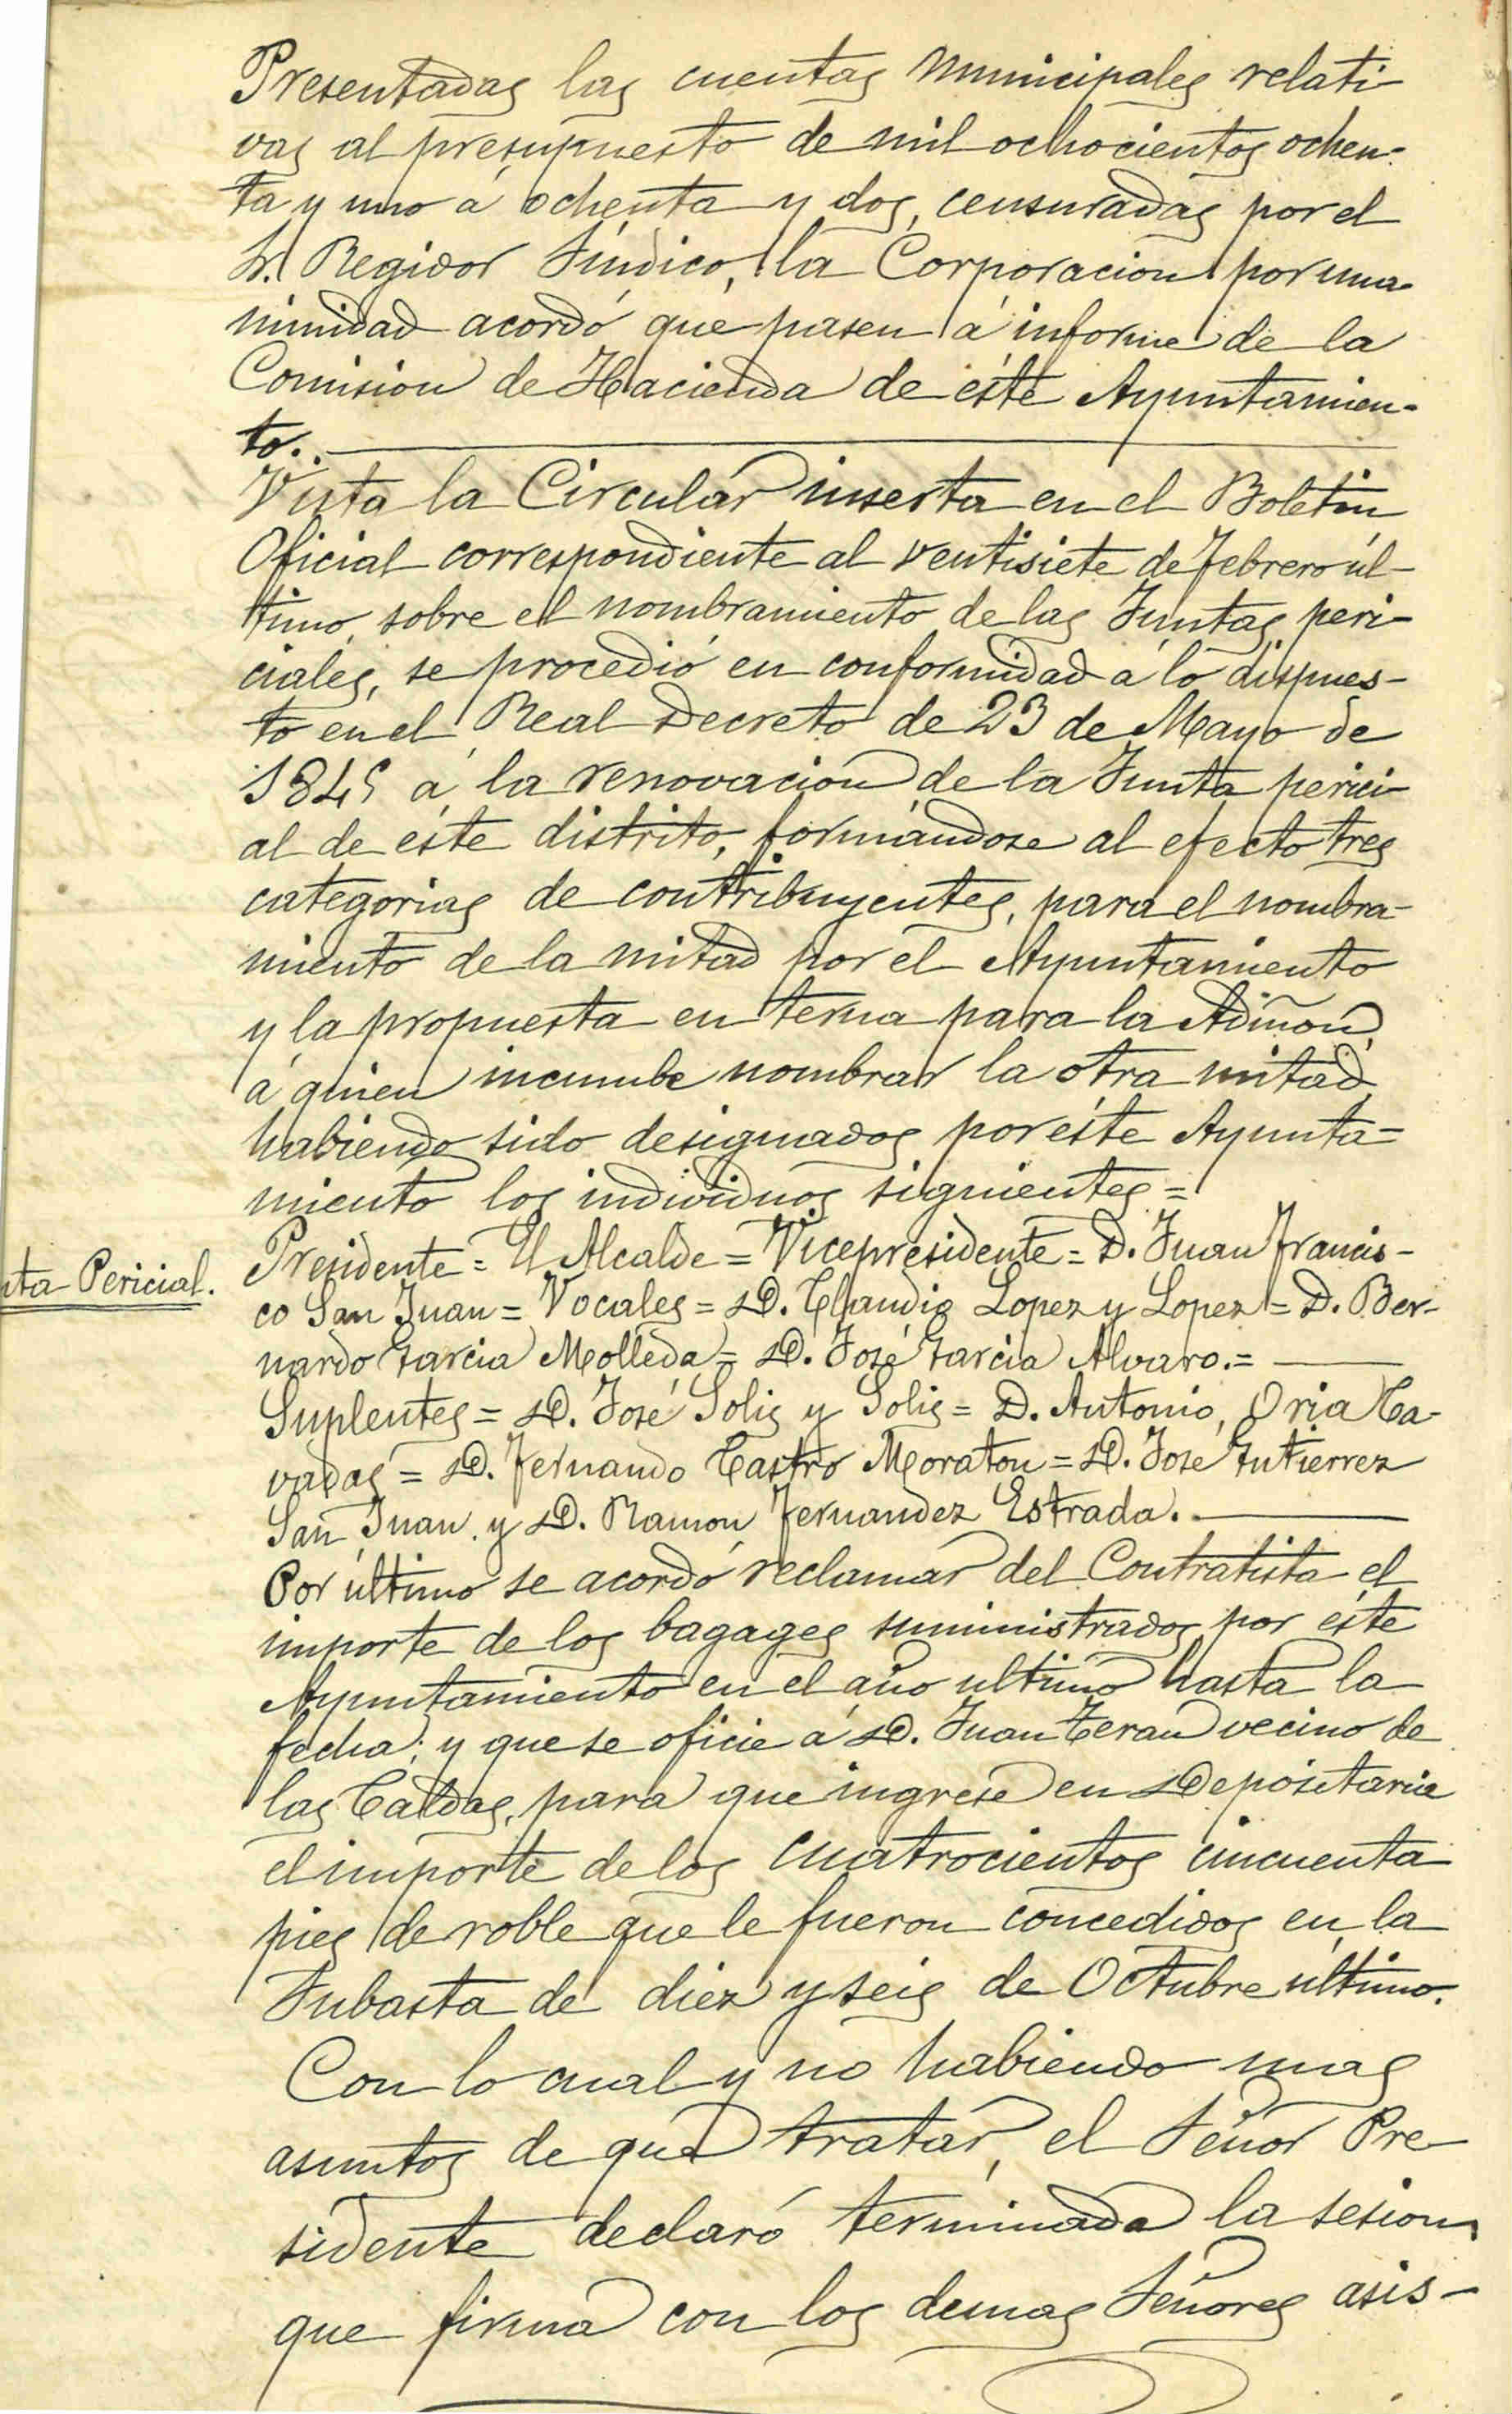 Presentadas las cuentas municipales relati-
vas al presupuesto de mil ochocientos ochen-
ta y uno á ochenta y dos, censuradas por el
Sr. Regidor Síndico, la Corporacion por una-
nimidad acordó que pasen á informe de la
Comision de Hacienda de éste Ayuntamien-
to.
Vista la Circular inserta en el Boletin
Oficial correspondiente al ventisiete de Febrero úl-
timo, sobre el nombramiento de las Juntas peri-
ciales, se procedió en conformidad á lo dispues-
to en el Real Decreto de 23 de Mayo de
1845 á la renovacion de la Junta perici-
al de éste distrito, formándose al efecto tres
categorias de contribuyentes, para el nombra-
miento de la mitad por el Ayuntamiento
y la propuesta en terna para la Admon,
á quien incumbe nombrar la otra mitad,
habiendo sido designados por éste Ayunta=
miento los individuos siguientes=
Presidente= El Alcalde= Vicepresidente= D. Juan Francis-
nta Pericial.
co San Juan= Vocales= D. Claudio Lopez y Lopez= D. Ber-
nardo Garcia Molleda= D. José Garcia Alvaro.=
Suplentes= D. José Solis y Solis= D. Antonio, Oria Ca-
vadas= D. Fernando Castro Moraton= D. José Gutierrez
San Juan, y D. Ramon Fernandez Estrada.
Por último se acordó reclamar del Contratista el
importe de los bagages suministrados por éste
Ayuntamiento en el año ultimo hasta la
fecha; y que se oficie á D. Juan Teran vecino de
las Caldas, para que ingrese en Depositaria
el importe de los cuatrocientos cincuenta
pies de roble que le fueron concedidos en la
Subasta de diez y seis de Octubre último.
Con lo cual y no habiendo mas
asuntos de que tratar, el Señor Pre-
sidente declaró terminada la sesion
que firma con los demas Señores asis-